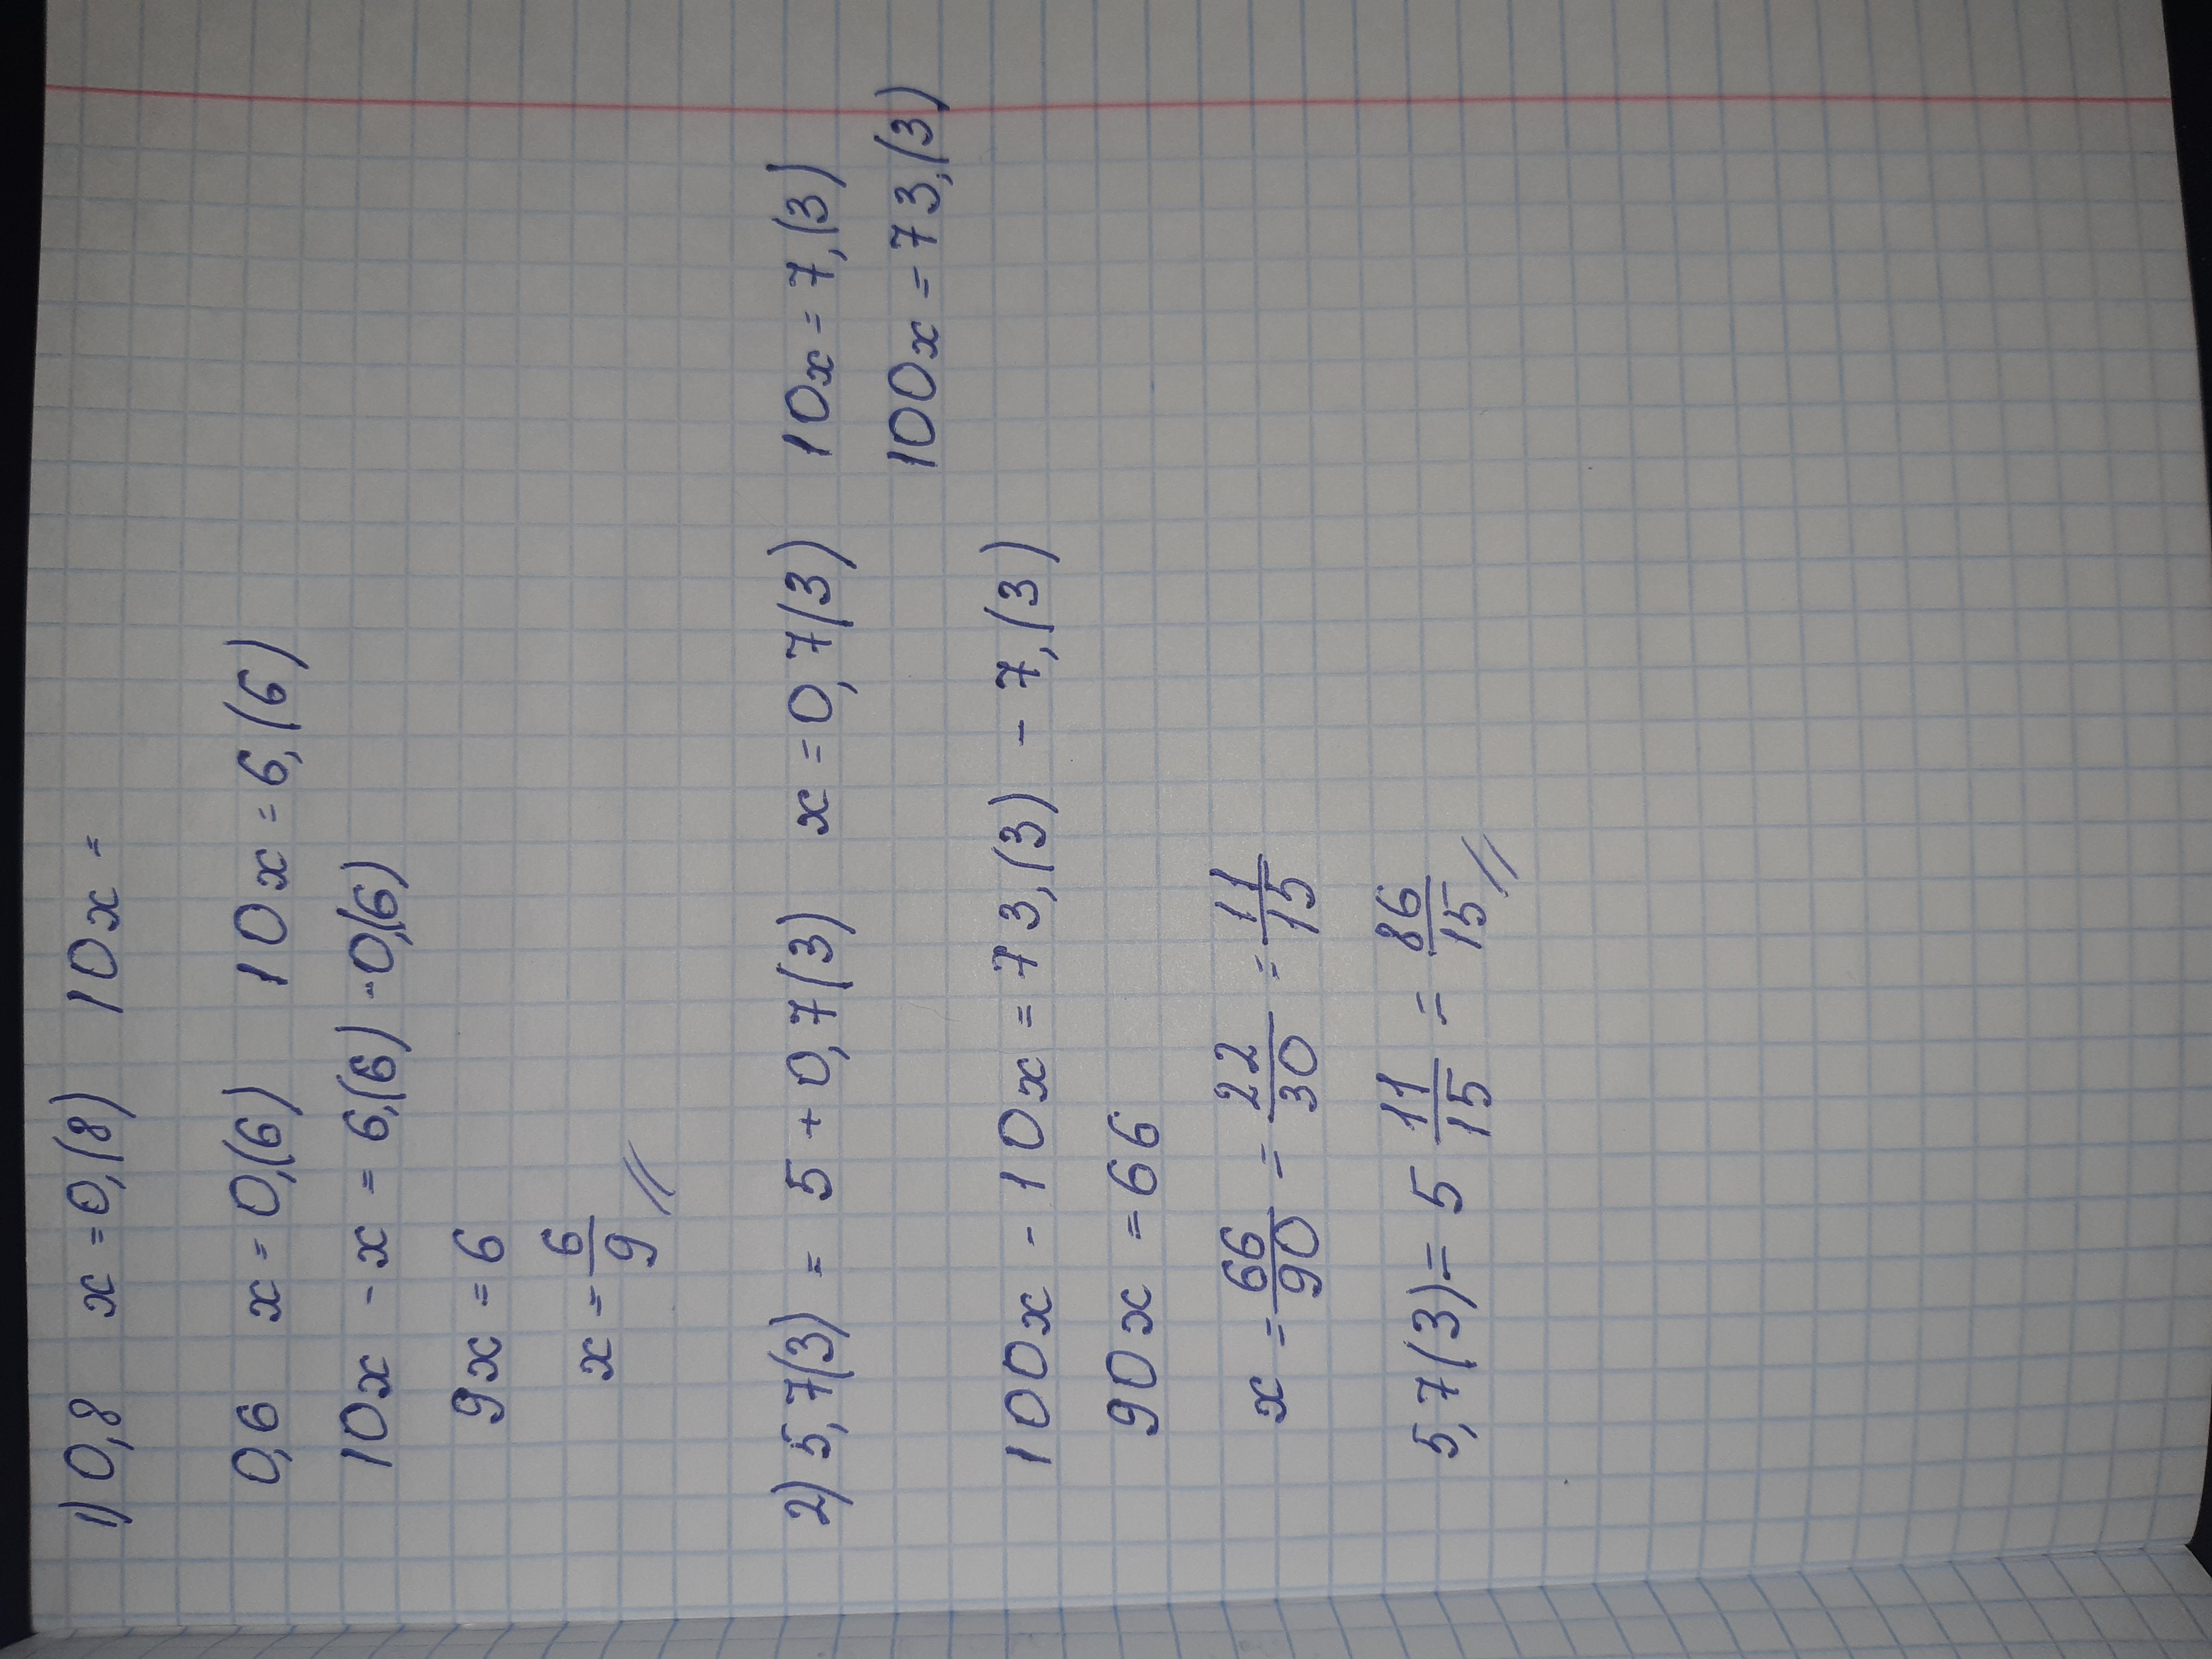 1) 0,8 x = 0,(8) 10x =
0,6 x = 0,(6) 10x = 6,(6)
10x - x = 6,(6) - 0,(6)
9x = 6
x = 6/9 //
2) 5,7(3) = 5 + 0,7(3) x = 0,7(3) 10x = 7,(3)
100x = 73,(3)
100x - 10x = 73,(3) - 7,(3)
90x = 66
x = 66/90 = 22/30 = 11/15
5,7(3) = 5 11/15 = 86/15 //